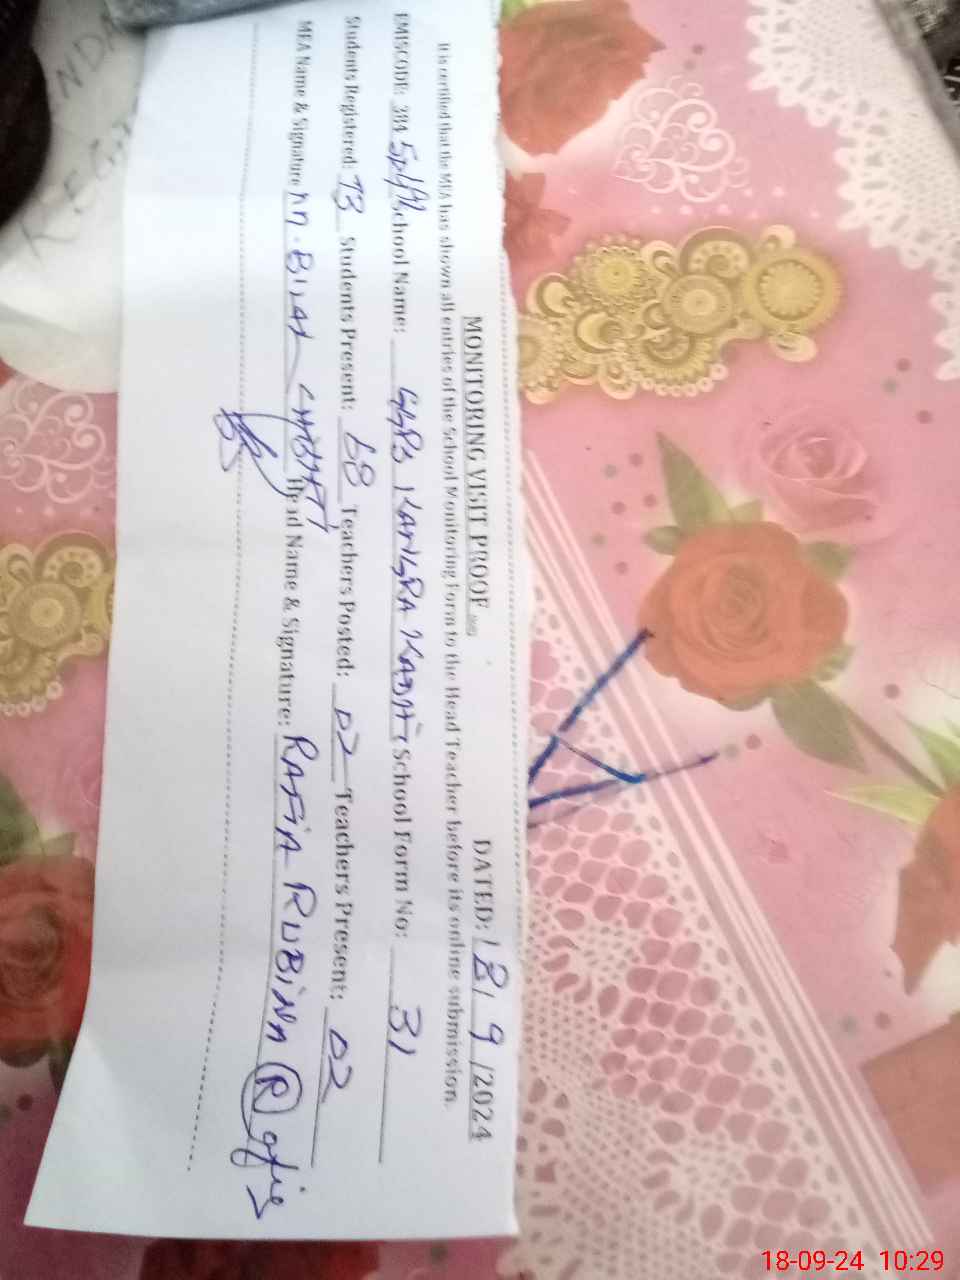 MONITORING VISIT PROOF DATED: 18/ 9 /2024
It is certified that the MEA has shown all entries of the School Monitoring Form to the Head Teacher before its online submission.
EMISCODE: 384 School Name: GGPS KANGRA KADHI School Form No: 31
Students Registered: 73 Students Present: 68 Teachers Posted: 02 Teachers Present: 02
MEA Name & Signature M. BILAL Head Name & Signature: RAFIA RUBINA
18-09-24 10:29